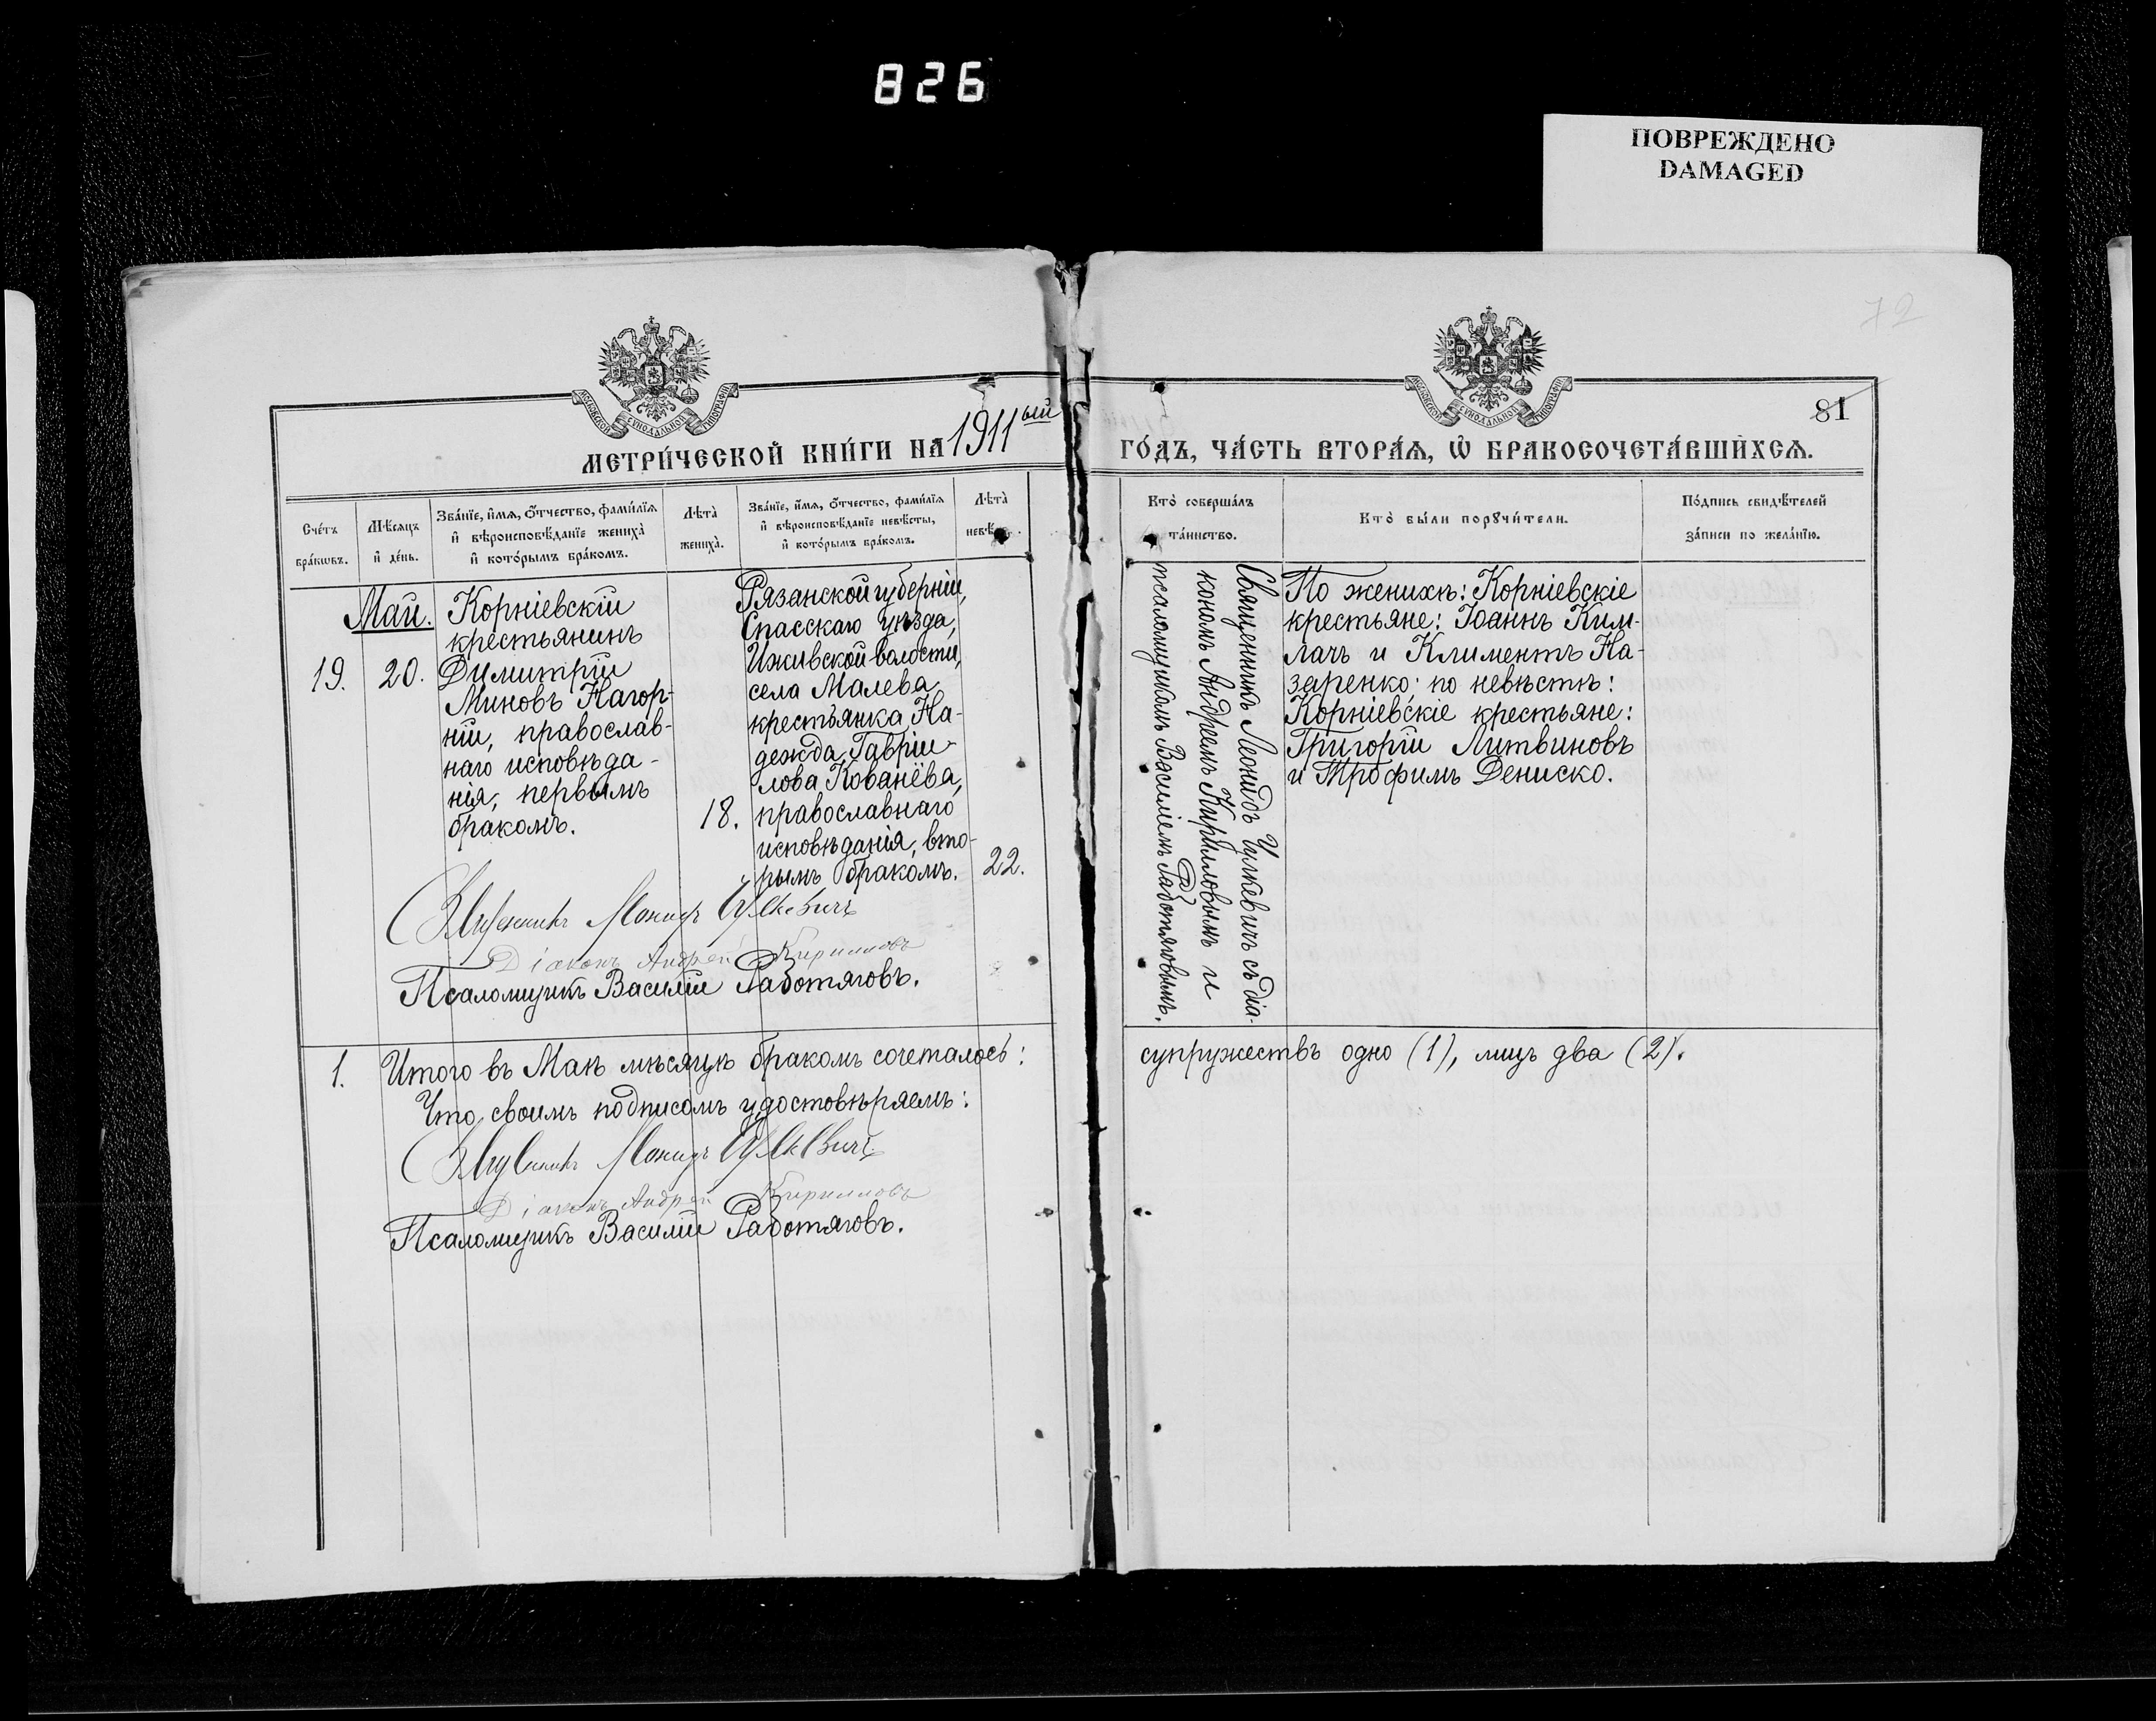 826
ПОВРЕЖДЕНО
DAMAGED
72
81
МЕТРИ́ЧЕСКОЙ КНИ́ГИ НА 1911ый
ГО́ДЪ, ЧА́СТЬ ВТОРА́Ѧ, Ѡ҆ БРАКОСОЧЕТА́ВШИХСѦ.
Сче́тъ
бра́кѡвъ.
Мѣ́сѧцъ
и҆ де́нь.
Зва́нїе, и҆́мѧ, ѻ҆́тчество, фами́лїѧ
и҆ вѣроисповѣ́данїе жениха̀
и҆ кото́рымъ бра́комъ.
Лѣ́та̀
жениха̀.
Зва́нїе, и҆́мѧ, ѻ҆́тчество, фами́лїѧ
и҆ вѣроисповѣ́данїе невѣ́сты,
и҆ кото́рымъ бра́комъ.
Лѣ́та̀
Кто̀ соверша́лъ
та́инство.
Кто̀ бы́ли порꙋчи́тели.
По́дпись свидѣ́телей
за́писи по жела́нїю.
Май.
19.
20.
Корніевскій
крестьянинъ
Димитрій
Миновъ Нагор-
ній, православ-
наго исповѣда-
нія, первымъ
бракомъ.
18.
Рязанской губерніи,
Спасскаго уѣзда,
Ижевской волости,
села Малева
крестьянка На-
дежда Гавріи-
лова Кованёва,
православнаго
исповѣданія, вто-
рымъ бракомъ.
22.
Священникъ Леонидъ Чулкевичъ съ діа-
кономъ Андреемъ Кирилловымъ и
псаломщикомъ Василіемъ Работяговымъ.
По женихѣ: Корніевскіе
крестьяне: Іоаннъ Ким-
лачъ и Климентъ На-
заренко; по невѣстѣ:
Корніевскіе крестьяне:
Григорій Литвиновъ
и Трофимъ Дениско.
Священникъ Леонидъ Чулкевичъ
Діаконъ Андрей Кирилловъ
Псаломщикъ Василій Работяговъ.
1. Итого въ Маѣ мѣсяцѣ бракомъ сочеталось:
супружествъ одно (1), лицъ два (2).
Что своимъ подписомъ удостовѣряемъ:
Священникъ Леонидъ Чулкевичъ
Діаконъ Андрей Кирилловъ
Псаломщикъ Василій Работяговъ.